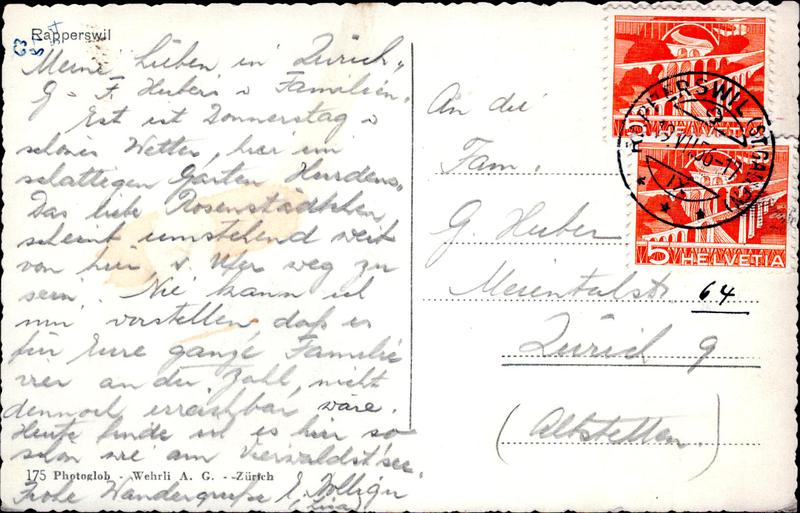 Rapperswil
Meine Lieben in Zürich,
G - F Hubers & Familien.
Est ist Donnerstag &
schönes Wetter, hier im
schattigen Garten Hurdens.
Das liebe Rosenstädtchen
scheint umstehend weit
von hier, v. Ufer weg zu
sein. Nie kann ich
mir vorstellen daß es
für Eure ganze Familie
vier an der Zahl, nicht
dennoch erreichbar wäre.
Heute finde ich es hier so
schön wie am Vierwaldst'see.
175 Photoglob - Wehrli A. G. - Zürich
Frohe Wandergrüße E.
An die
Fam.
G. Huber
Meientalstr. 64
Zürich 9
(Altstetten)
5 HELVETIA
RAPPERSWIL (ST. GALLEN)
5 HELVETIA